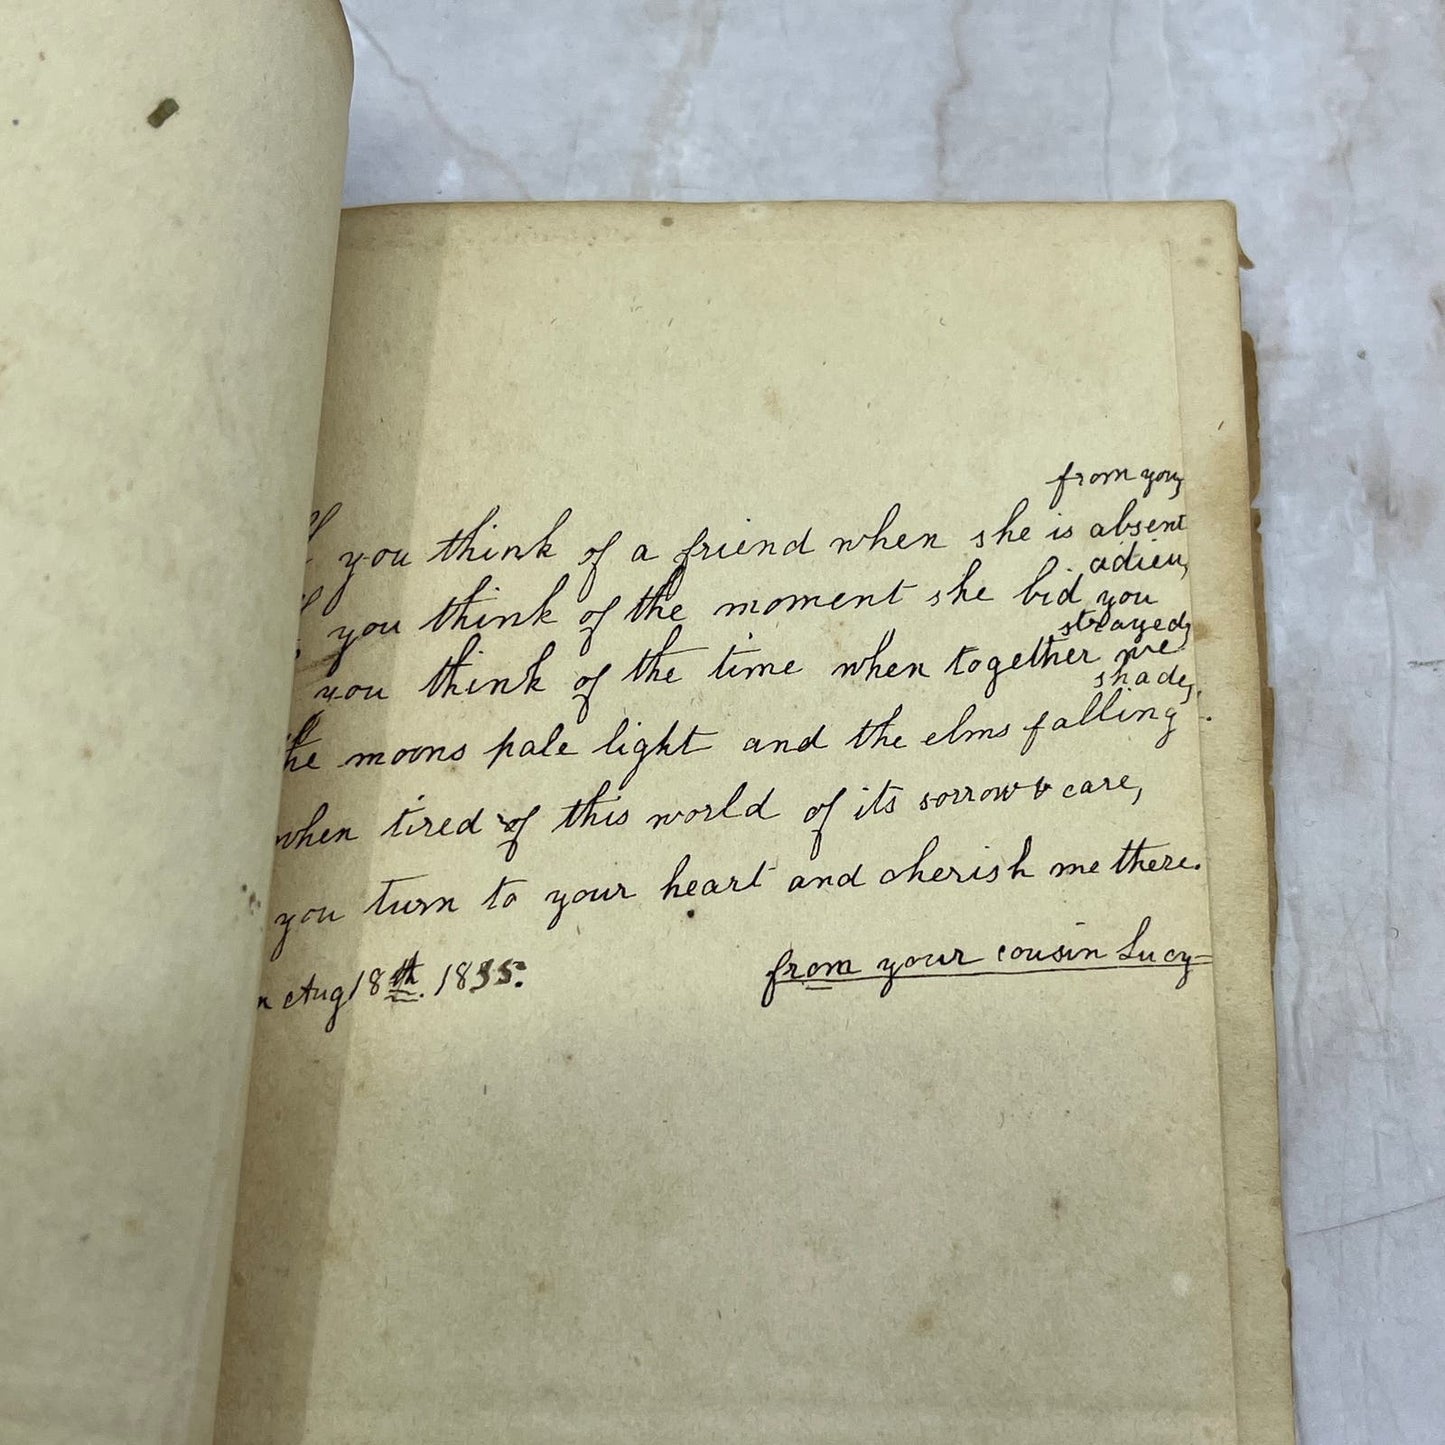 from you,
If you think of a friend when she is absent
adieu,
you think of the moment she bid you
strayed,
you think of the time when together we
shade,
he moons pale light and the elms falling
when tired of this world of its sorrow & care,
you turn to your heart and cherish me there.
from your cousin Lucy
Aug 18th.